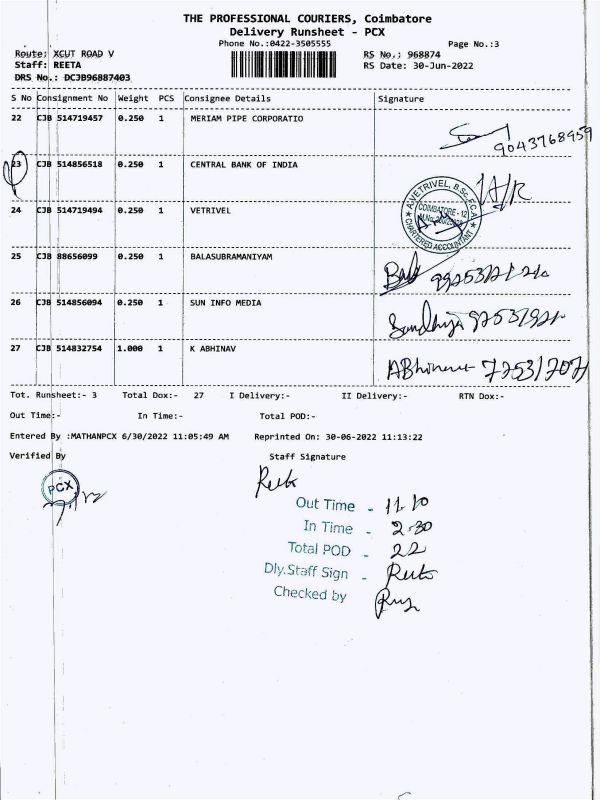 THE PROFESSIONAL COURIERS, Coimbatore
Delivery Runsheet - PCX
Phone No.:0422-3505555 Page No.:3
Route: XCUT ROAD V RS No.: 968874
Staff: REETA RS Date: 30-Jun-2022
DRS No.: DCJB96887403
S No Consignment No Weight PCS Consignee Details Signature
22 CJB 514719457 0.250 1 MERIAM PIPE CORPORATIO
9043768959
23 CJB 514856518 0.250 1 CENTRAL BANK OF INDIA
A.VETRIVEL, B.Sc, F.C.A
COIMBATORE - 12
CHARTERED ACCOUNTANT
24 CJB 514719494 0.250 1 VETRIVEL
25 CJB 88656099 0.250 1 BALASUBRAMANIYAM
26 CJB 514856094 0.250 1 SUN INFO MEDIA
Sandhiya
27 CJB 514832754 1.000 1 K ABHINAV
Tot. Runsheet:- 3 Total Dox:- 27 I Delivery:- II Delivery:- RTN Dox:-
Out Time:- In Time:- Total POD:-
Entered By :MATHANPCX 6/30/2022 11:05:49 AM Reprinted On: 30-06-2022 11:13:22
Verified By Staff Signature
PCX
Out Time - 11.10
In Time - 2.30
Total POD - 22
Dly.Staff Sign -
Checked by